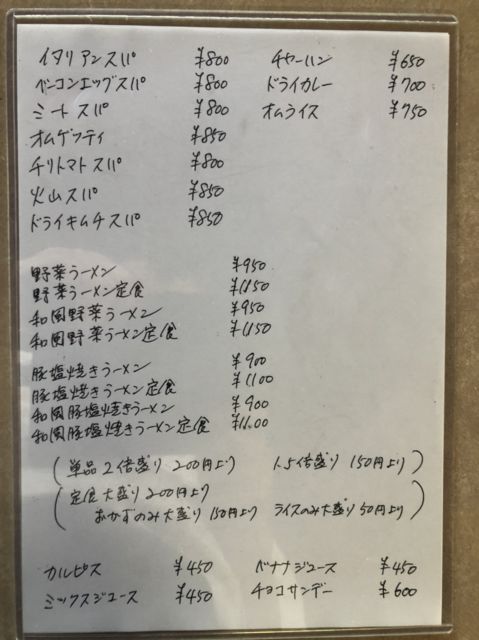 イタリアンスパ ¥800 チャーハン ¥650
ベーコンエッグスパ ¥800 ドライカレー ¥700
ミートスパ ¥800 オムライス ¥750
オムゲッティ ¥850
チリトマトスパ ¥800
火山スパ ¥850
ドライキムチスパ ¥850
野菜ラーメン ¥950
野菜ラーメン定食 ¥1150
和風野菜ラーメン ¥950
和風野菜ラーメン定食 ¥1150
豚塩焼きラーメン ¥900
豚塩焼きラーメン定食 ¥1100
和風豚塩焼きラーメン ¥900
和風豚塩焼きラーメン定食 ¥1100
(単品2倍盛り 200円より 1.5倍盛り 150円より)
(定食大盛り 200円より
おかずのみ大盛り 150円より ライスのみ大盛り 50円より)
カルピス ¥450 バナナジュース ¥450
ミックスジュース ¥450 チョコサンデー ¥600